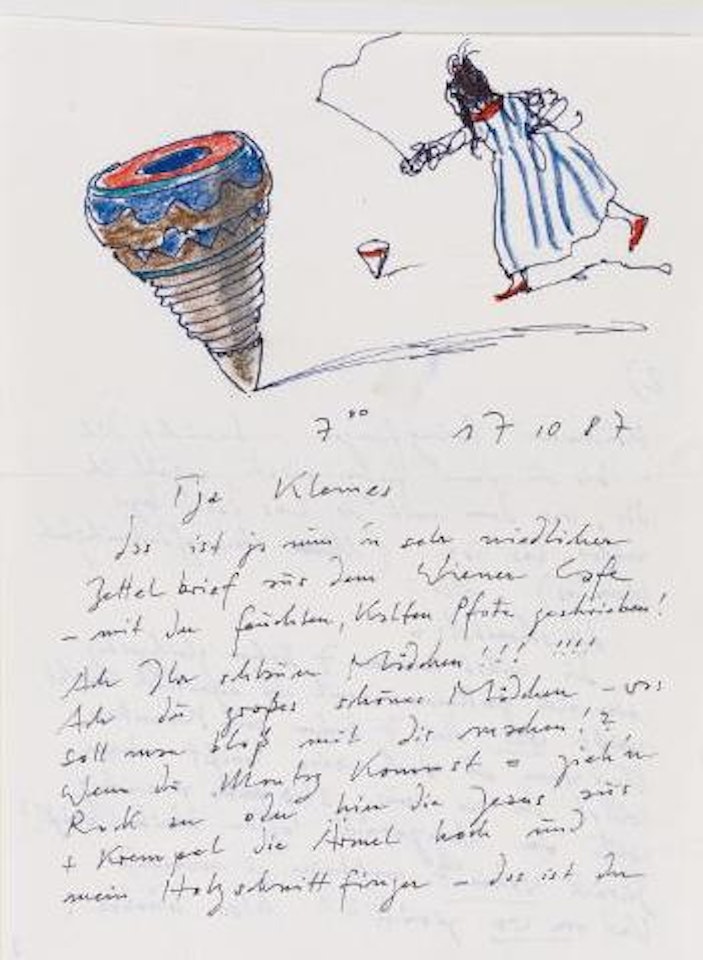 7⁰⁰ 17 10 87
Tja Kleines
das ist ja nun 'n sehr niedlicher
Zettelbrief aus dem Wiener Cafe
– mit der feuchten, kalten Pfote geschrieben!
Ach Ihr schönen Mädchen!!! !!!!
Ach du großes schönes Mädchen – was
soll man bloß mit dir machen!?
Wenn du Montag kommst – zieh'n
Rock an oder hin die Jeans aus
+ Krempel die Ärmel hoch und
mein Holzschnittfinger – das ist der